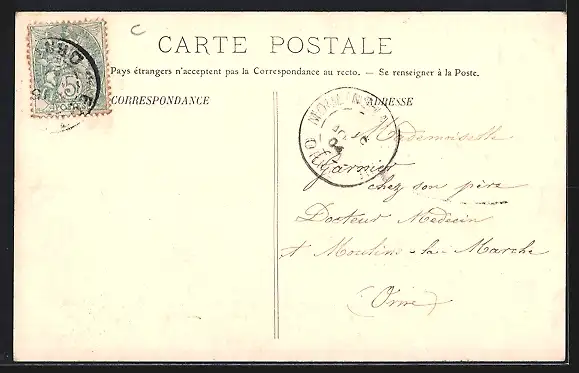 C
CARTE POSTALE
Pays étrangers n'acceptent pas la Correspondance au recto. — Se renseigner à la Poste.
CORRESPONDANCE
ADRESSE
5
POSTE
MOULINS
ORNE
Mademoiselle
Garnier
chez son père
Docteur Medecin
à Moulins-la-Marche
(Orne)